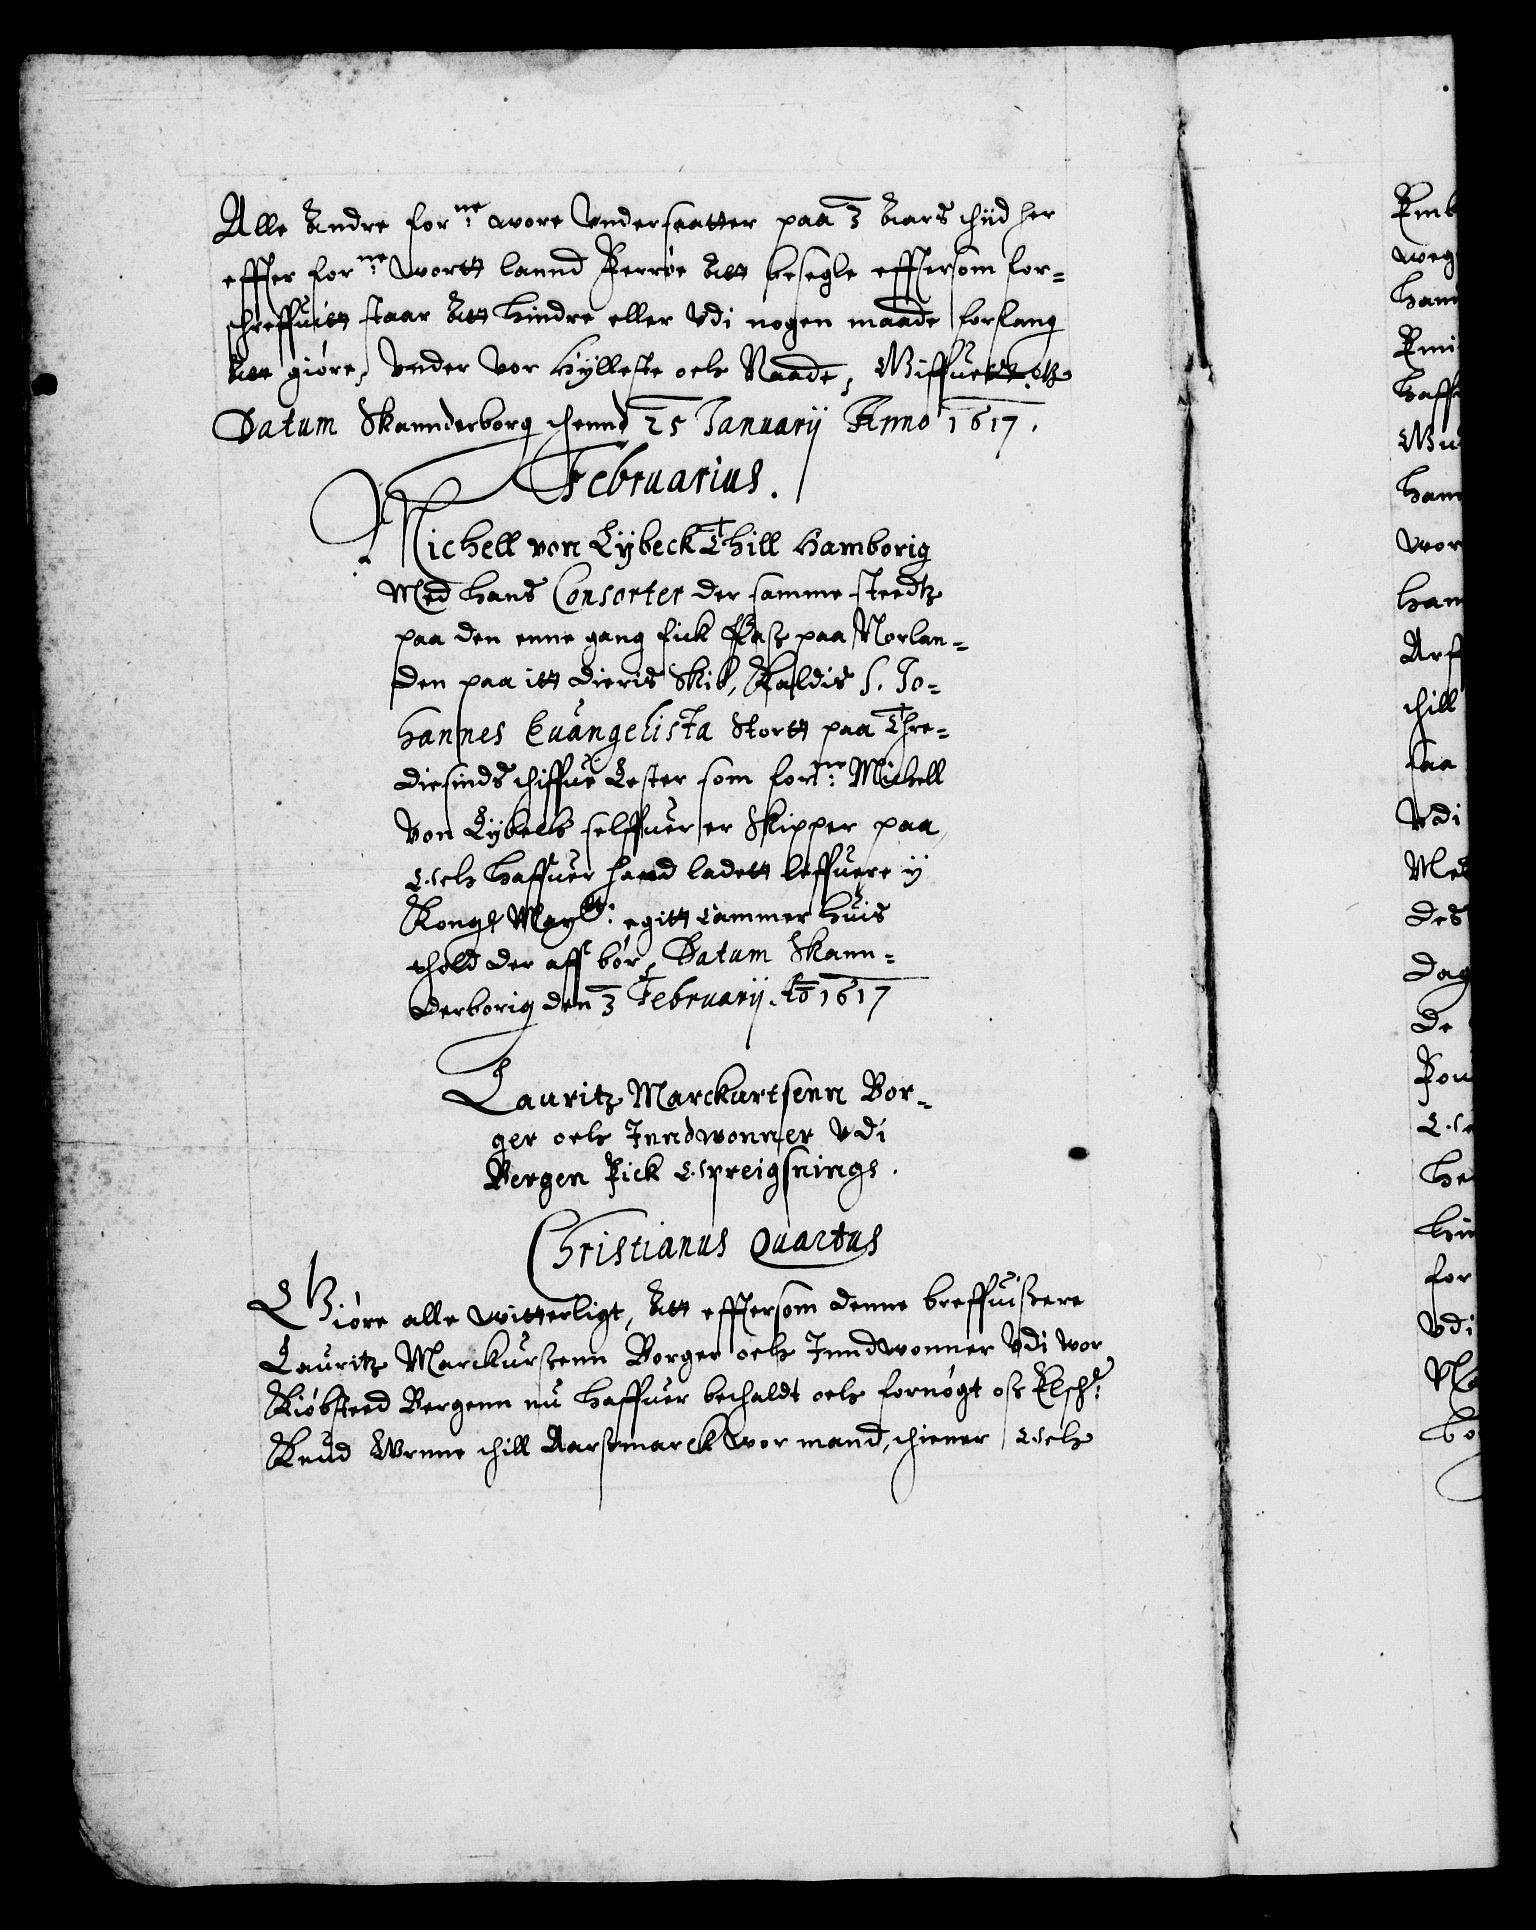 Alle Andre forne wore Vndersaatter paa 3 Aars thiid her
effter forne wortt lannd Ferrøe Att besegle efftersom for-
schreffuitt staar Att hindre eller Vdi nogen maade forfang
Att giøre, Vnder Vor Hylleste och Naade,
Datum Skannderborg thennd 25 Januarij Anno 1617.
Februarius.
Michell von Lybeck Thill Hamborig
Med hans Consorter der samme stedtz
paa den enne gang fick Pasz paa Norlan-
den paa itt dieris Skib, Kaldis S. Jo-
hannes Euangelista Stortt paa Thre-
diesinds thiffue Lester som forne Michell
Von Lybeck selffuer er Skipper paa
Och haffuer hand ladett leffuere ij
Kong: Maytt: egitt Cammer huis
thold der aff bør, Datum Skann-
derborig den 3 Februarij. Ao 1617
Lauritz Marckurtsenn Bor-
ger och Inndwonner Vdi
Bergen Fick Opreigsnings.
Christianus Quartus
Giøre alle witterligt, Att efftersom denne breffuiszere
Lauritz Marckurszenn Borger och Inndwonner Vdi wor
Kiøbsteed Bergenn nu haffuer bethaldt och fornøgt osz Elsch:
Knud Wrnne thill Aarszmarck wor mand, thiener Och
Emb
weg
ham
Emi
haff
ham
wor
ham
thill
saa
Vdi
Med
des
dag
de
he
for
Vdi